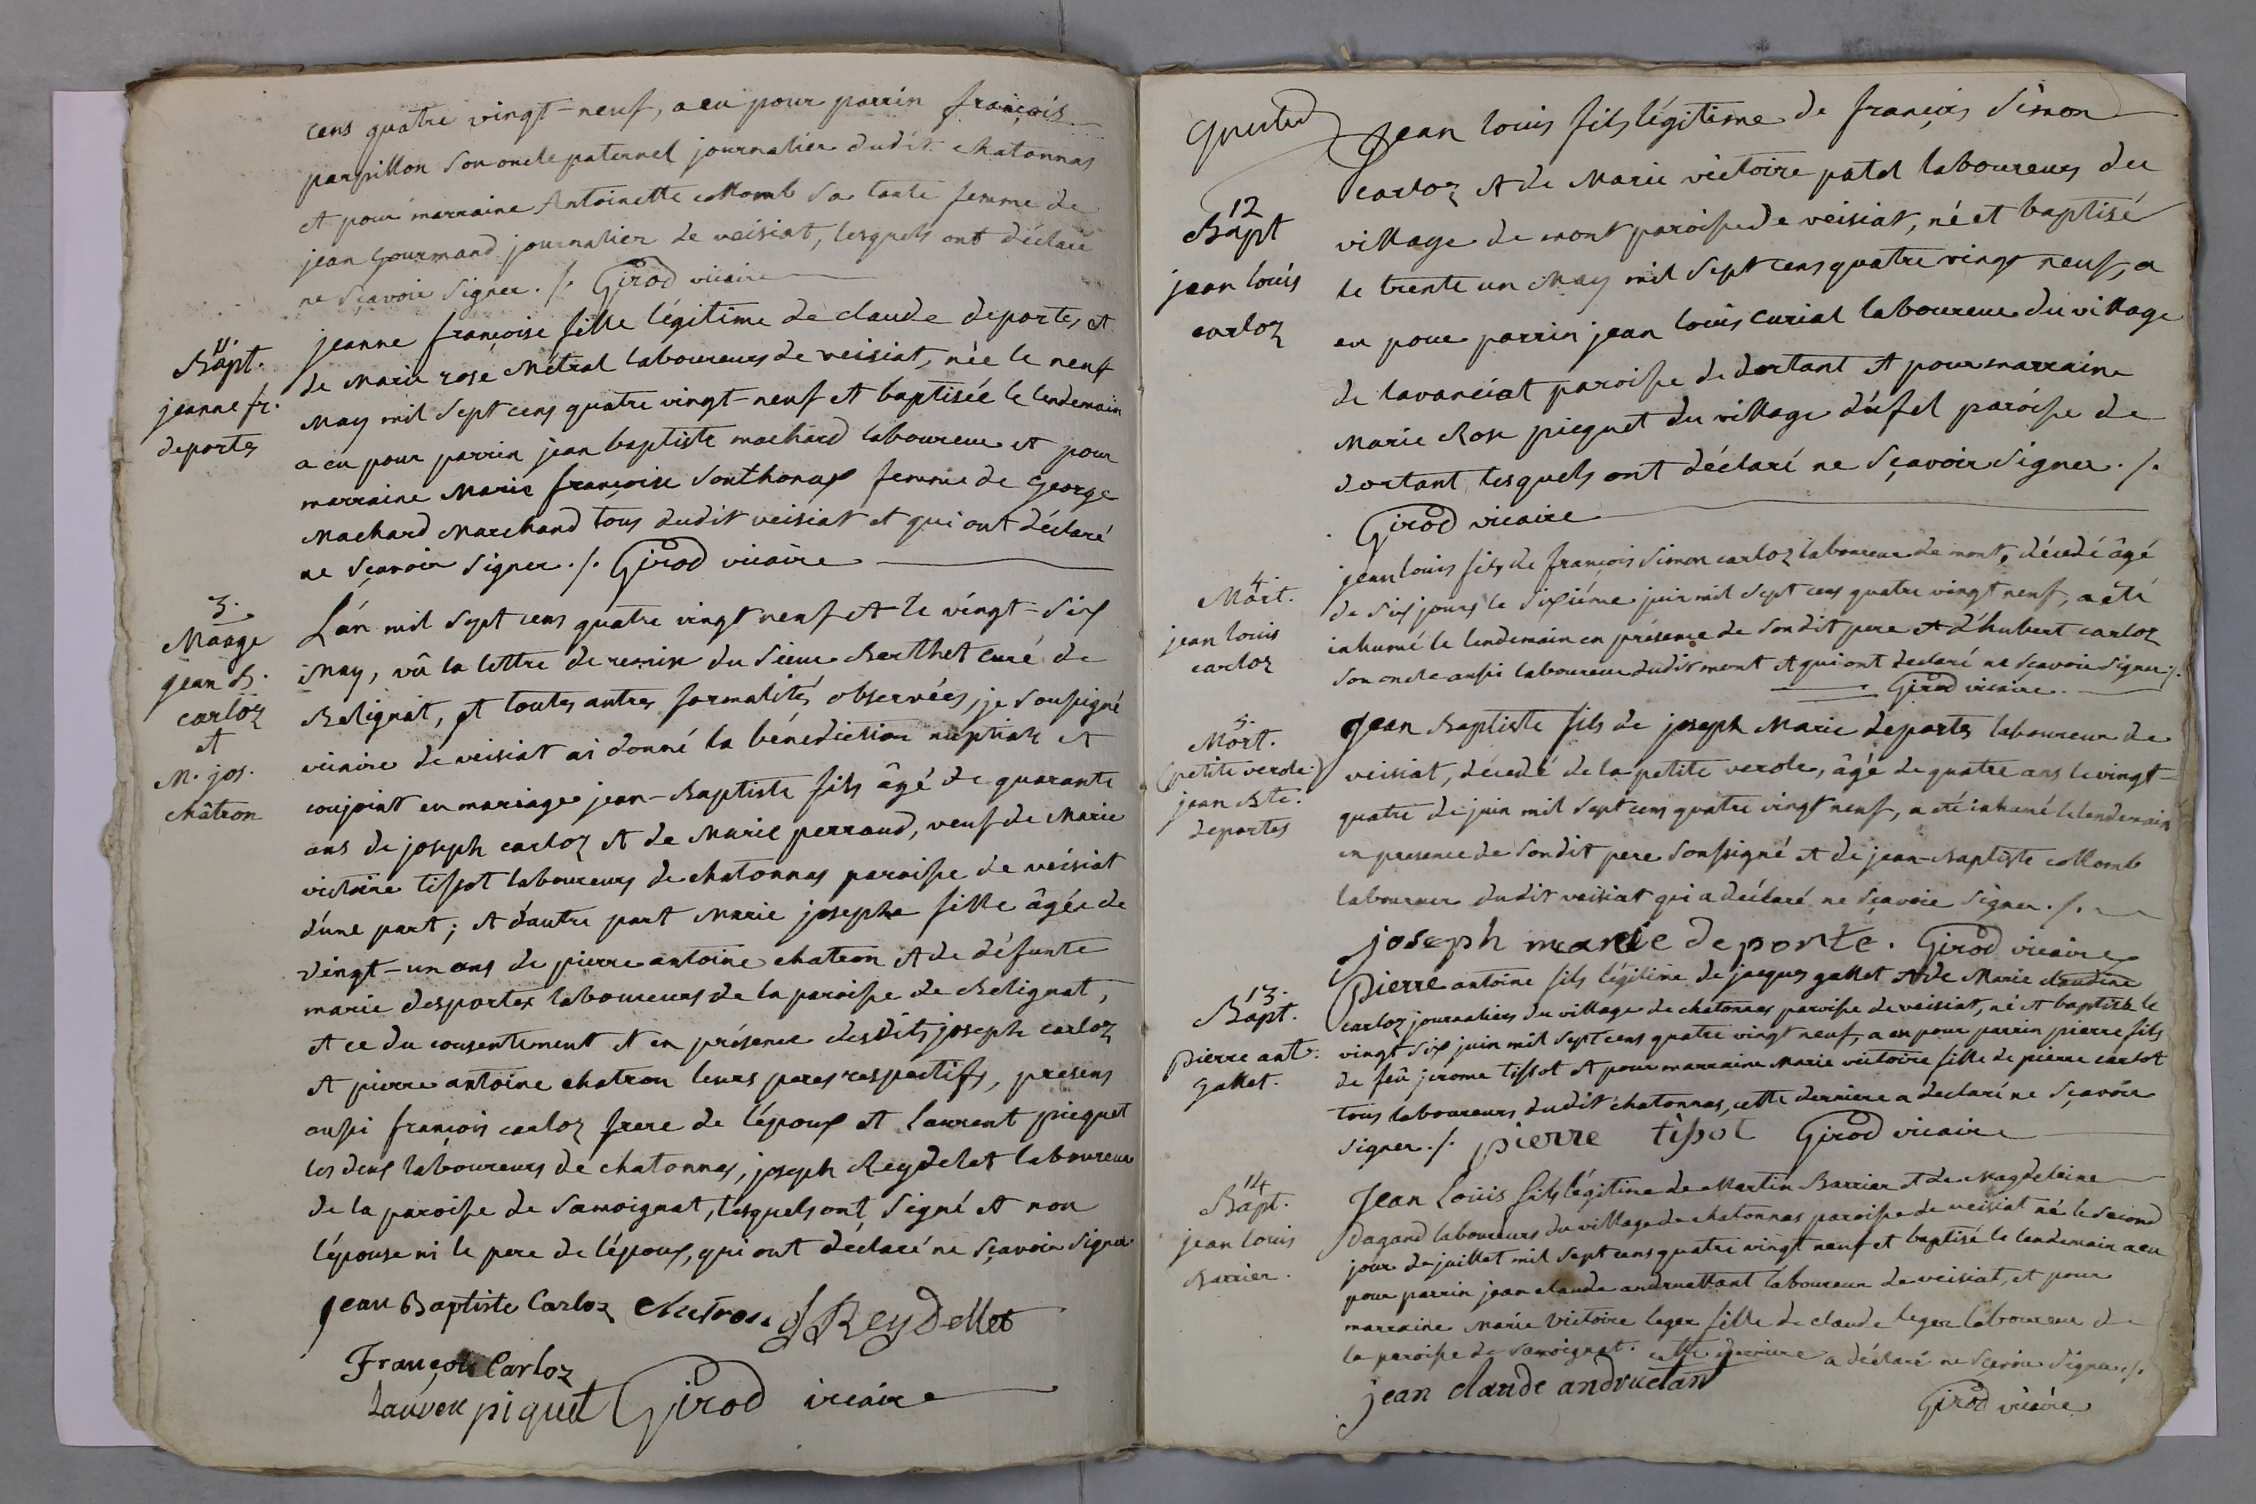 cens quatre vingt-neuf, a eu pour parrin françois
parpillon son oncle paternel journalier dudit chatonnas
et pour marraine Antoinette collomb sa tante femme de
jean Gourmand journalier de veisiat, lesquels ont déclaré
ne sçavoir signer ./. Girod vicaire
11.
Bapt.
jeanne fr.
deportes
jeanne françoise fille légitime de claude deportes et
de Marie rose Métral laboureurs de veisiat, née le neuf
May mil sept cens quatre vingt-neuf et baptisée le lendemain
a eu pour parrin jean baptiste machard laboureur et pour
marraine Marie françoise Sonthonax femme de George
Machard Marchand tous dudit veisiat et qui ont déclaré
ne sçavoir signer ./. Girod vicaire
3.
Maage
jean B.
carloz
et
M. jos.
châtron
L'an mil sept cens quatre vingt neuf et le vingt-six
May, vû la lettre de remise du sieur Berthet curé de
Belignat, et toutes autres formalités observées, je soussigné
vicaire de veisiat ai donné la bénediction nuptiale et
conjoint en mariage jean-Baptiste fils âgé de quarante
ans de joseph carloz et de Marie perraud, veuf de Marie
victoire tissot laboureurs de chatonnas paroisse de veisiat
d'une part; et d'autre part Marie josephe fille âgée de
vingt-un ans de pierre antoine chatron et de défunte
marie desportes laboureurs de la paroisse de Belignat,
et ce du consentement et en présence desdits joseph carloz
et pierre antoine chatron leurs peres respectifs, presens
aussi françois carloz frere de l'époux et laurent picquet
les deux laboureurs de chatonnas, joseph Reydelet laboureur
de la paroisse de Samoignat, lesquels ont signé et non
l'épouse ni le pere de l'époux, qui ont déclaré ne sçavoir signer
jean Baptiste Carloz chatron J Reydellet
François Carloz
Lauven piquet Girod vicaire
12
Bapt
jean louis
carloz
Jean louis fils légitime de françois Simon
carloz et de Marie victoire patel laboureurs du
village de mont paroisse de veisiat, né et baptisé
le trente un May mil sept cens quatre vingt neuf, a
eu pour parrin jean louis curial laboureur du village
de lavanciat paroisse de dortant et pour marraine
Marie Rose picquet du village d'ufel paroisse de
dortant lesquels ont déclaré ne sçavoir signer ./.
Girod vicaire
4.
Mort.
jean louis
carloz
jean louis fils de françois Simon carloz laboureur de mont, décedé âgé
de six jours le sixiéme juin mil sept cens quatre vingt neuf, a été
inhumé le lendemain en présence de sondit pere et d'hubert carloz
son oncle aussi laboureur dudit mont et qui ont declaré ne sçavoir signer ./.
Girod vicaire.
5.
Mort.
(petite verole)
jean Bte.
deportes
Jean Baptiste fils de joseph Marie deportes laboureur de
veisiat, décedé de la petite verole, âgé de quatre ans le vingt-
quatre de juin mil sept cens quatre vingt neuf, a été inhumé le lendemain
en presence de sondit pere soussigné et de jean-Baptiste collomb
laboureur dudit veisiat qui a déclaré ne sçavoir signer ./.
joseph marie deporte. Girod vicaire
13.
Bapt.
pierre ant.
gallet.
Pierre antoine fils légitime de jacques gallet et de Marie claudine
carloz journaliers du village de chatonnas paroisse de veisiat, né et baptisé le
vingt six juin mil sept cens quatre vingt neuf, a eu pour parrin pierre fils
de feû jerome tissot et pour marraine Marie victoire fille de pierre carlot
tous laboureurs dudit chatonnas, cette derniere a declaré ne sçavoir
signer ./. pierre tissot Girod vicaire
14
Bapt.
jean louis
Barrier.
Jean Louis fils légitime de Martin Barrier et de Magdelaine
Dagand laboureurs du village de chatonnas paroisse de veisiat né le second
jour de juillet mil sept cens quatre vingt neuf et baptisé le lendemain a eu
pour parrin jean claude andruettant laboureur de veisiat, et pour
marraine Marie Victoire leger fille de claude leger laboureur de
la paroisse de Samoignat. cette derniere a déclaré ne sçavoir signer ./.
jean claude andruetan
Girod vicaire